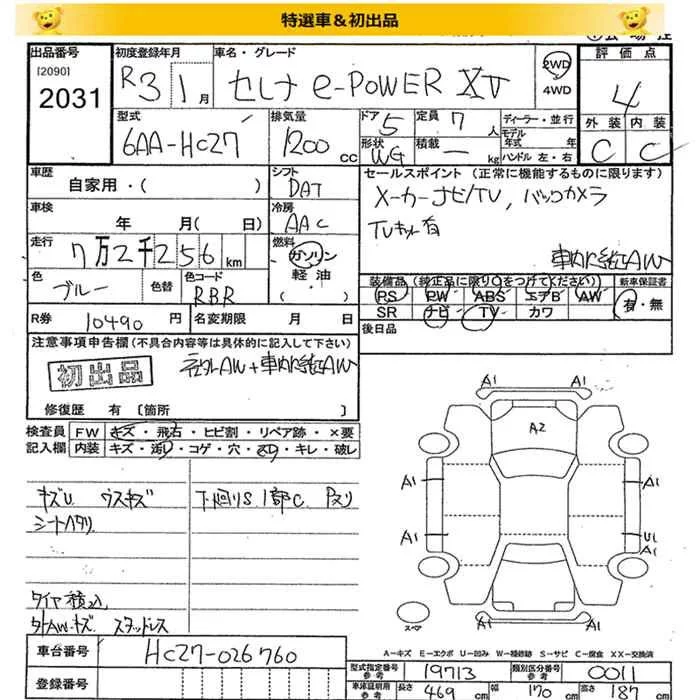 特選車&初出品
出品番号
[2090]
2031
初度登録年月
R3 1 月
車名・グレード
セレナ e-POWER XV
2WD
4WD
評価点
4
外装 内装
C C
型式
6AA-HC27
排気量
1200 cc
ドア 5
形状 WG
定員 7 人
積載 — kg
ディーラー・並行
モデル
年式 年
ハンドル 左・右
車歴
自家用・( )
シフト
DAT
車検
年 月( 日)
冷房
AAC
走行
7万2千256 km
燃料
ガソリン
軽油
・( )
色
ブルー
色替
色コード
RBR
R券 10490 円
名変期限 月 日
セールスポイント (正常に機能するものに限ります)
メーカーナビ/TV, バックカメラ
TVキット有
車内に純AW
装備品 (純正品に限り○をつけてください)
新車保証書
PS PW ABS エアB AW
SR ナビ TV カワ
有・無
後日品
注意事項申告欄(不具合内容等は具体的に記入して下さい)
初出品
社外AW+車内に純AW
修復歴 有 [箇所 ]
検査員
記入欄
FW キズ・飛石・ヒビ割・リペア跡・×要
内装 キズ・汚・コゲ・穴・・キレ・破レ
キズU ウスキズ
シートヘタリ
下廻りS. 1部C.
タイヤ積込
外AWキズ スタッドレス
A1 A1
A2
A1 A1
A1 U1
A1
A1 A1
スペア
A-キズ E-エクボ U-凹み W-補修跡 S-サビ C-腐食 XX-交換済
車台番号
HC27-026760
登録番号
型式指定番号
参考
19713
類別区分番号
参考
0011
車検証明用
参考
長さ 469 cm
幅 170 cm
高さ 187 cm